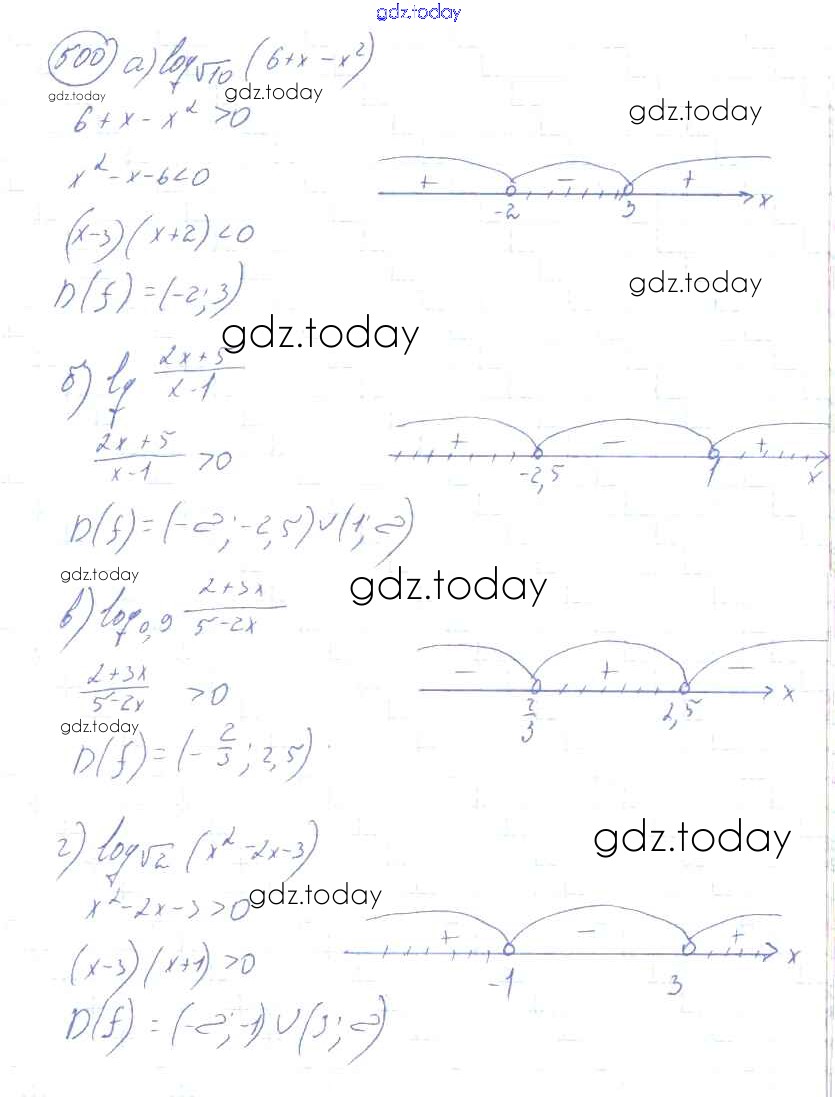 gdz.today
500 а) log√10 (6+x-x²)
gdz.today gdz.today
6+x-x²>0 gdz.today
x²-x-6<0
+ - + x
-2 3
(x-3)(x+2)<0
D(f)=(-2;3) gdz.today
gdz.today
б) lg (2x+5)/(x-1)
(2x+5)/(x-1) >0
+ - +
-2,5 1 x
D(f)=(-∞;-2,5)∪(1;∞)
gdz.today gdz.today
в) log0,9 (2+3x)/(5-2x)
(2+3x)/(5-2x) >0
- + - x
2/3 2,5
gdz.today
D(f)=(-2/3;2,5).
г) log√2 (x²-2x-3) gdz.today
x²-2x-3>0 gdz.today
+ - + x
-1 3
(x-3)(x+1)>0
D(f)=(-∞;-1)∪(3;∞)